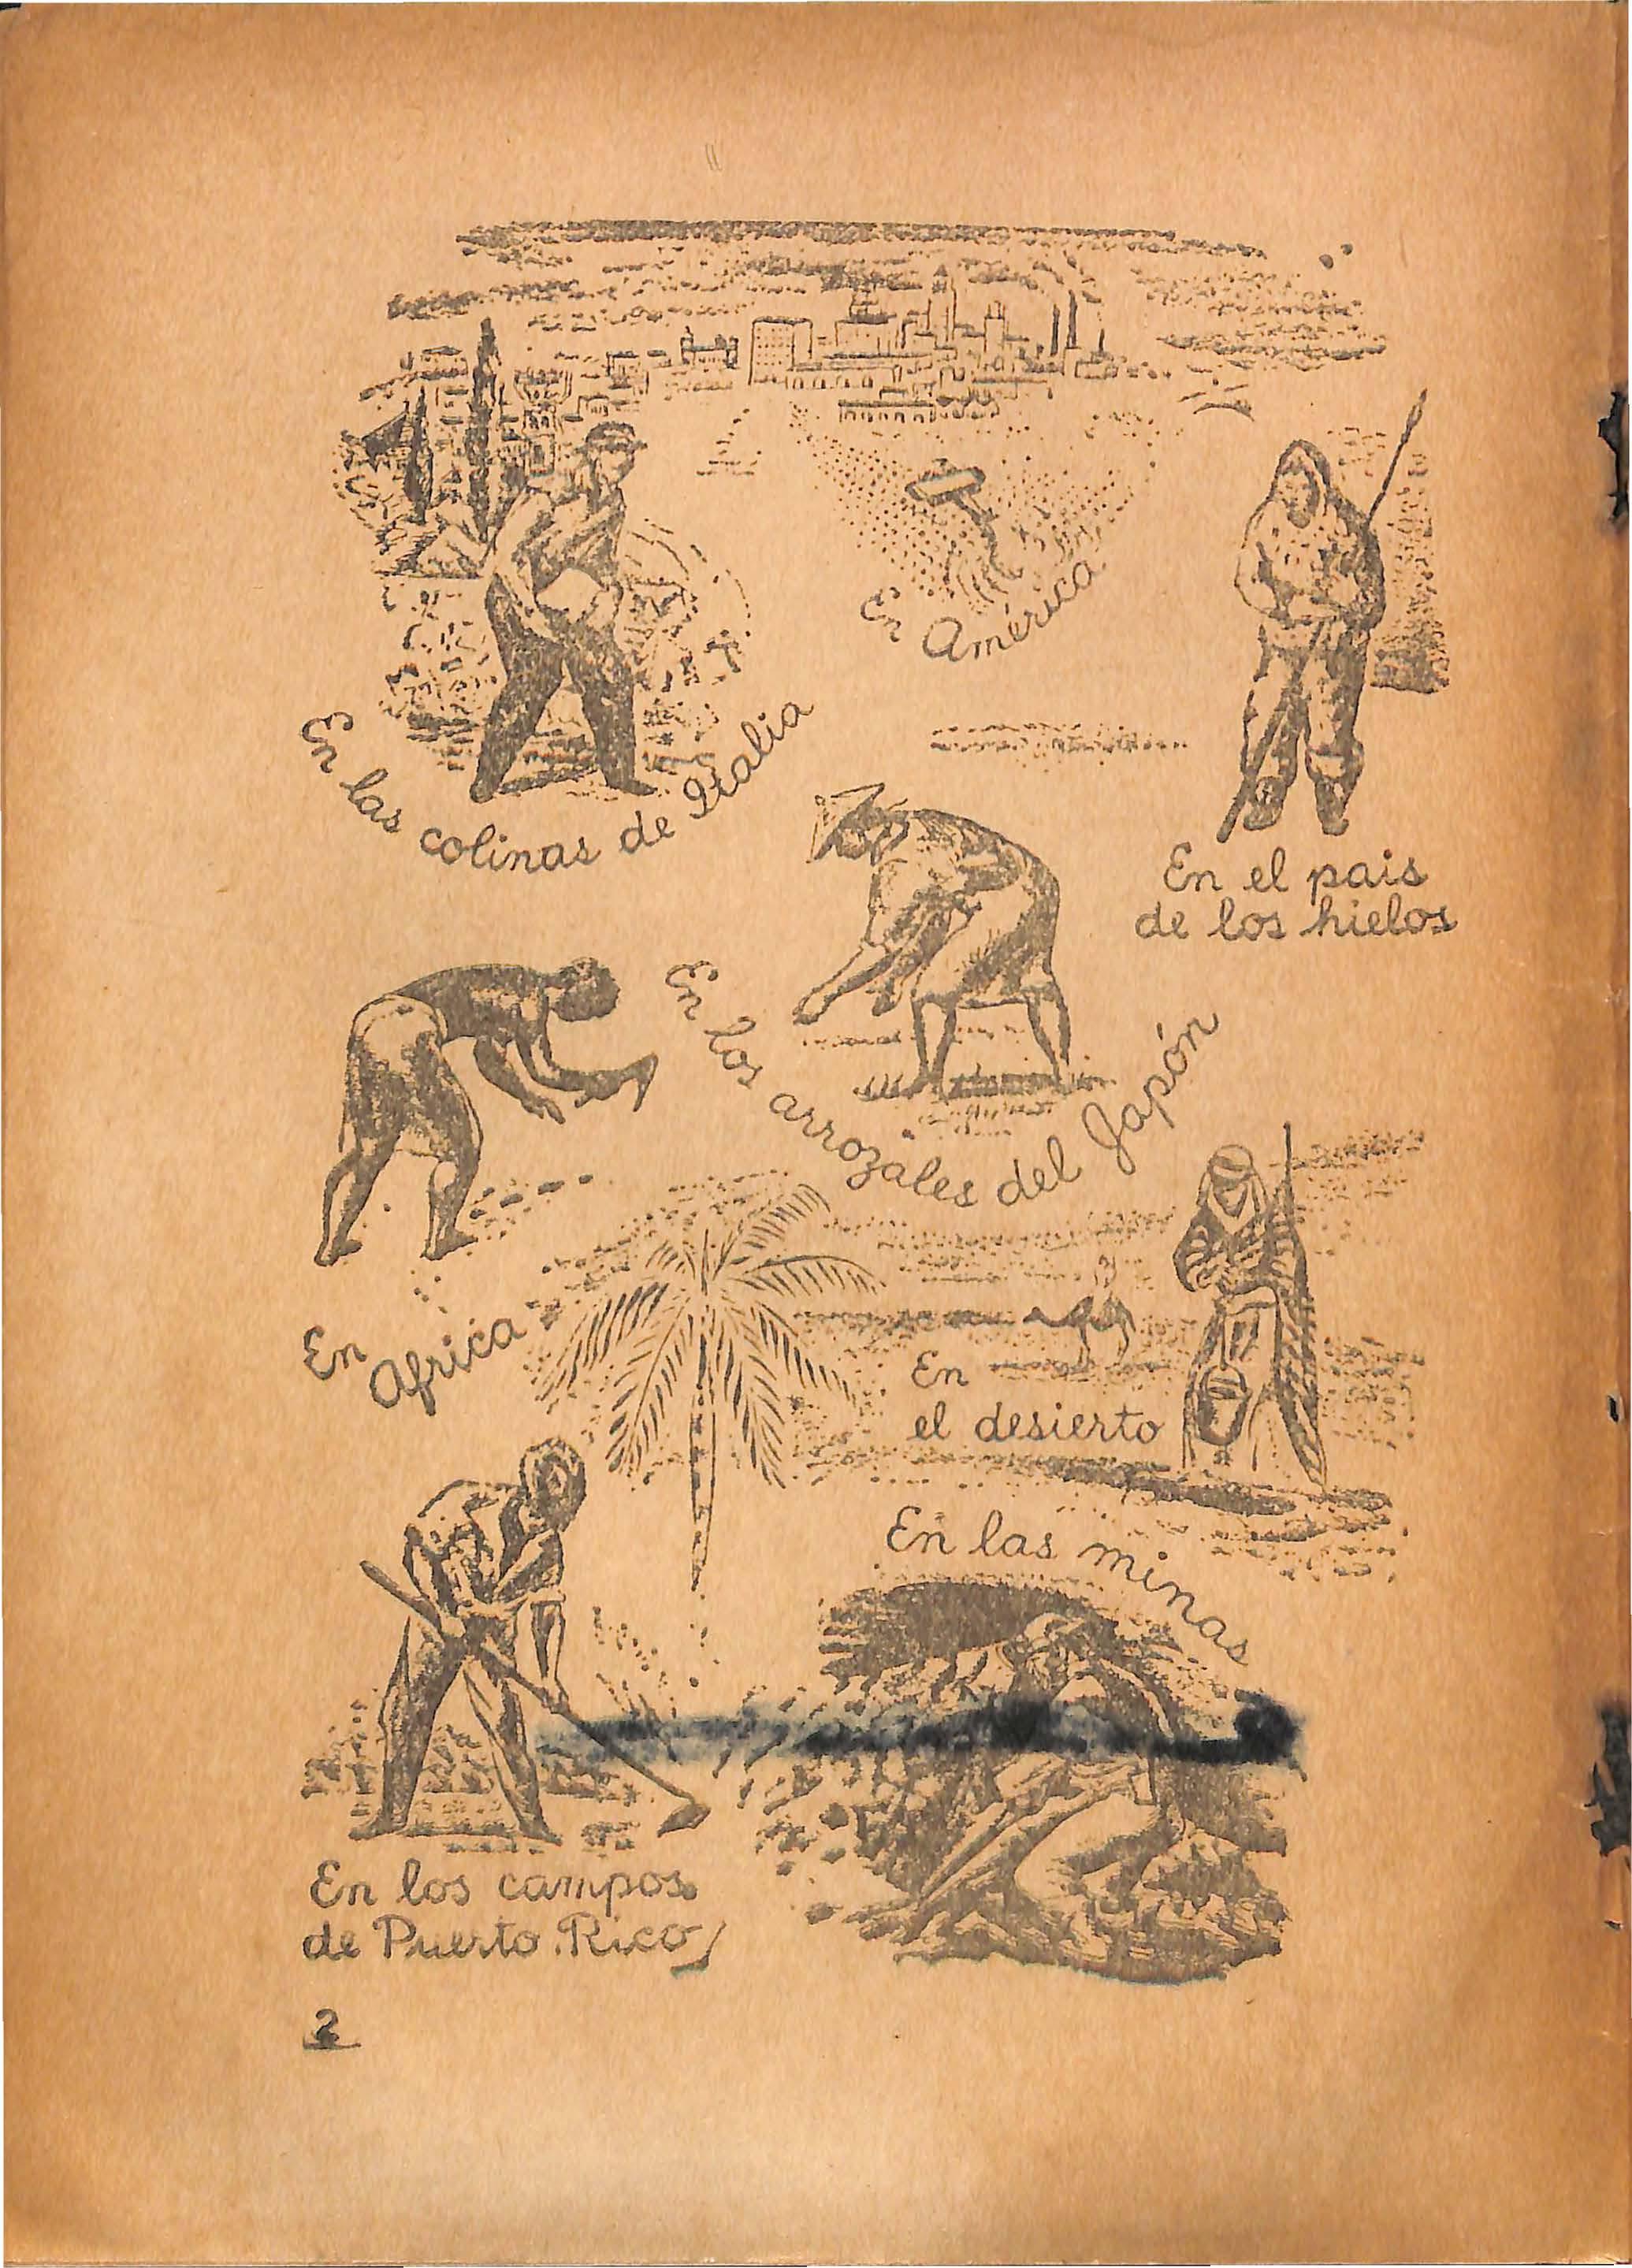 En América
En las colinas de Italia
En el pais
de los hielos
En los arrozales del Japón
En Africa
En
el desierto
En las minas
En los campos
de Puerto Rico
2